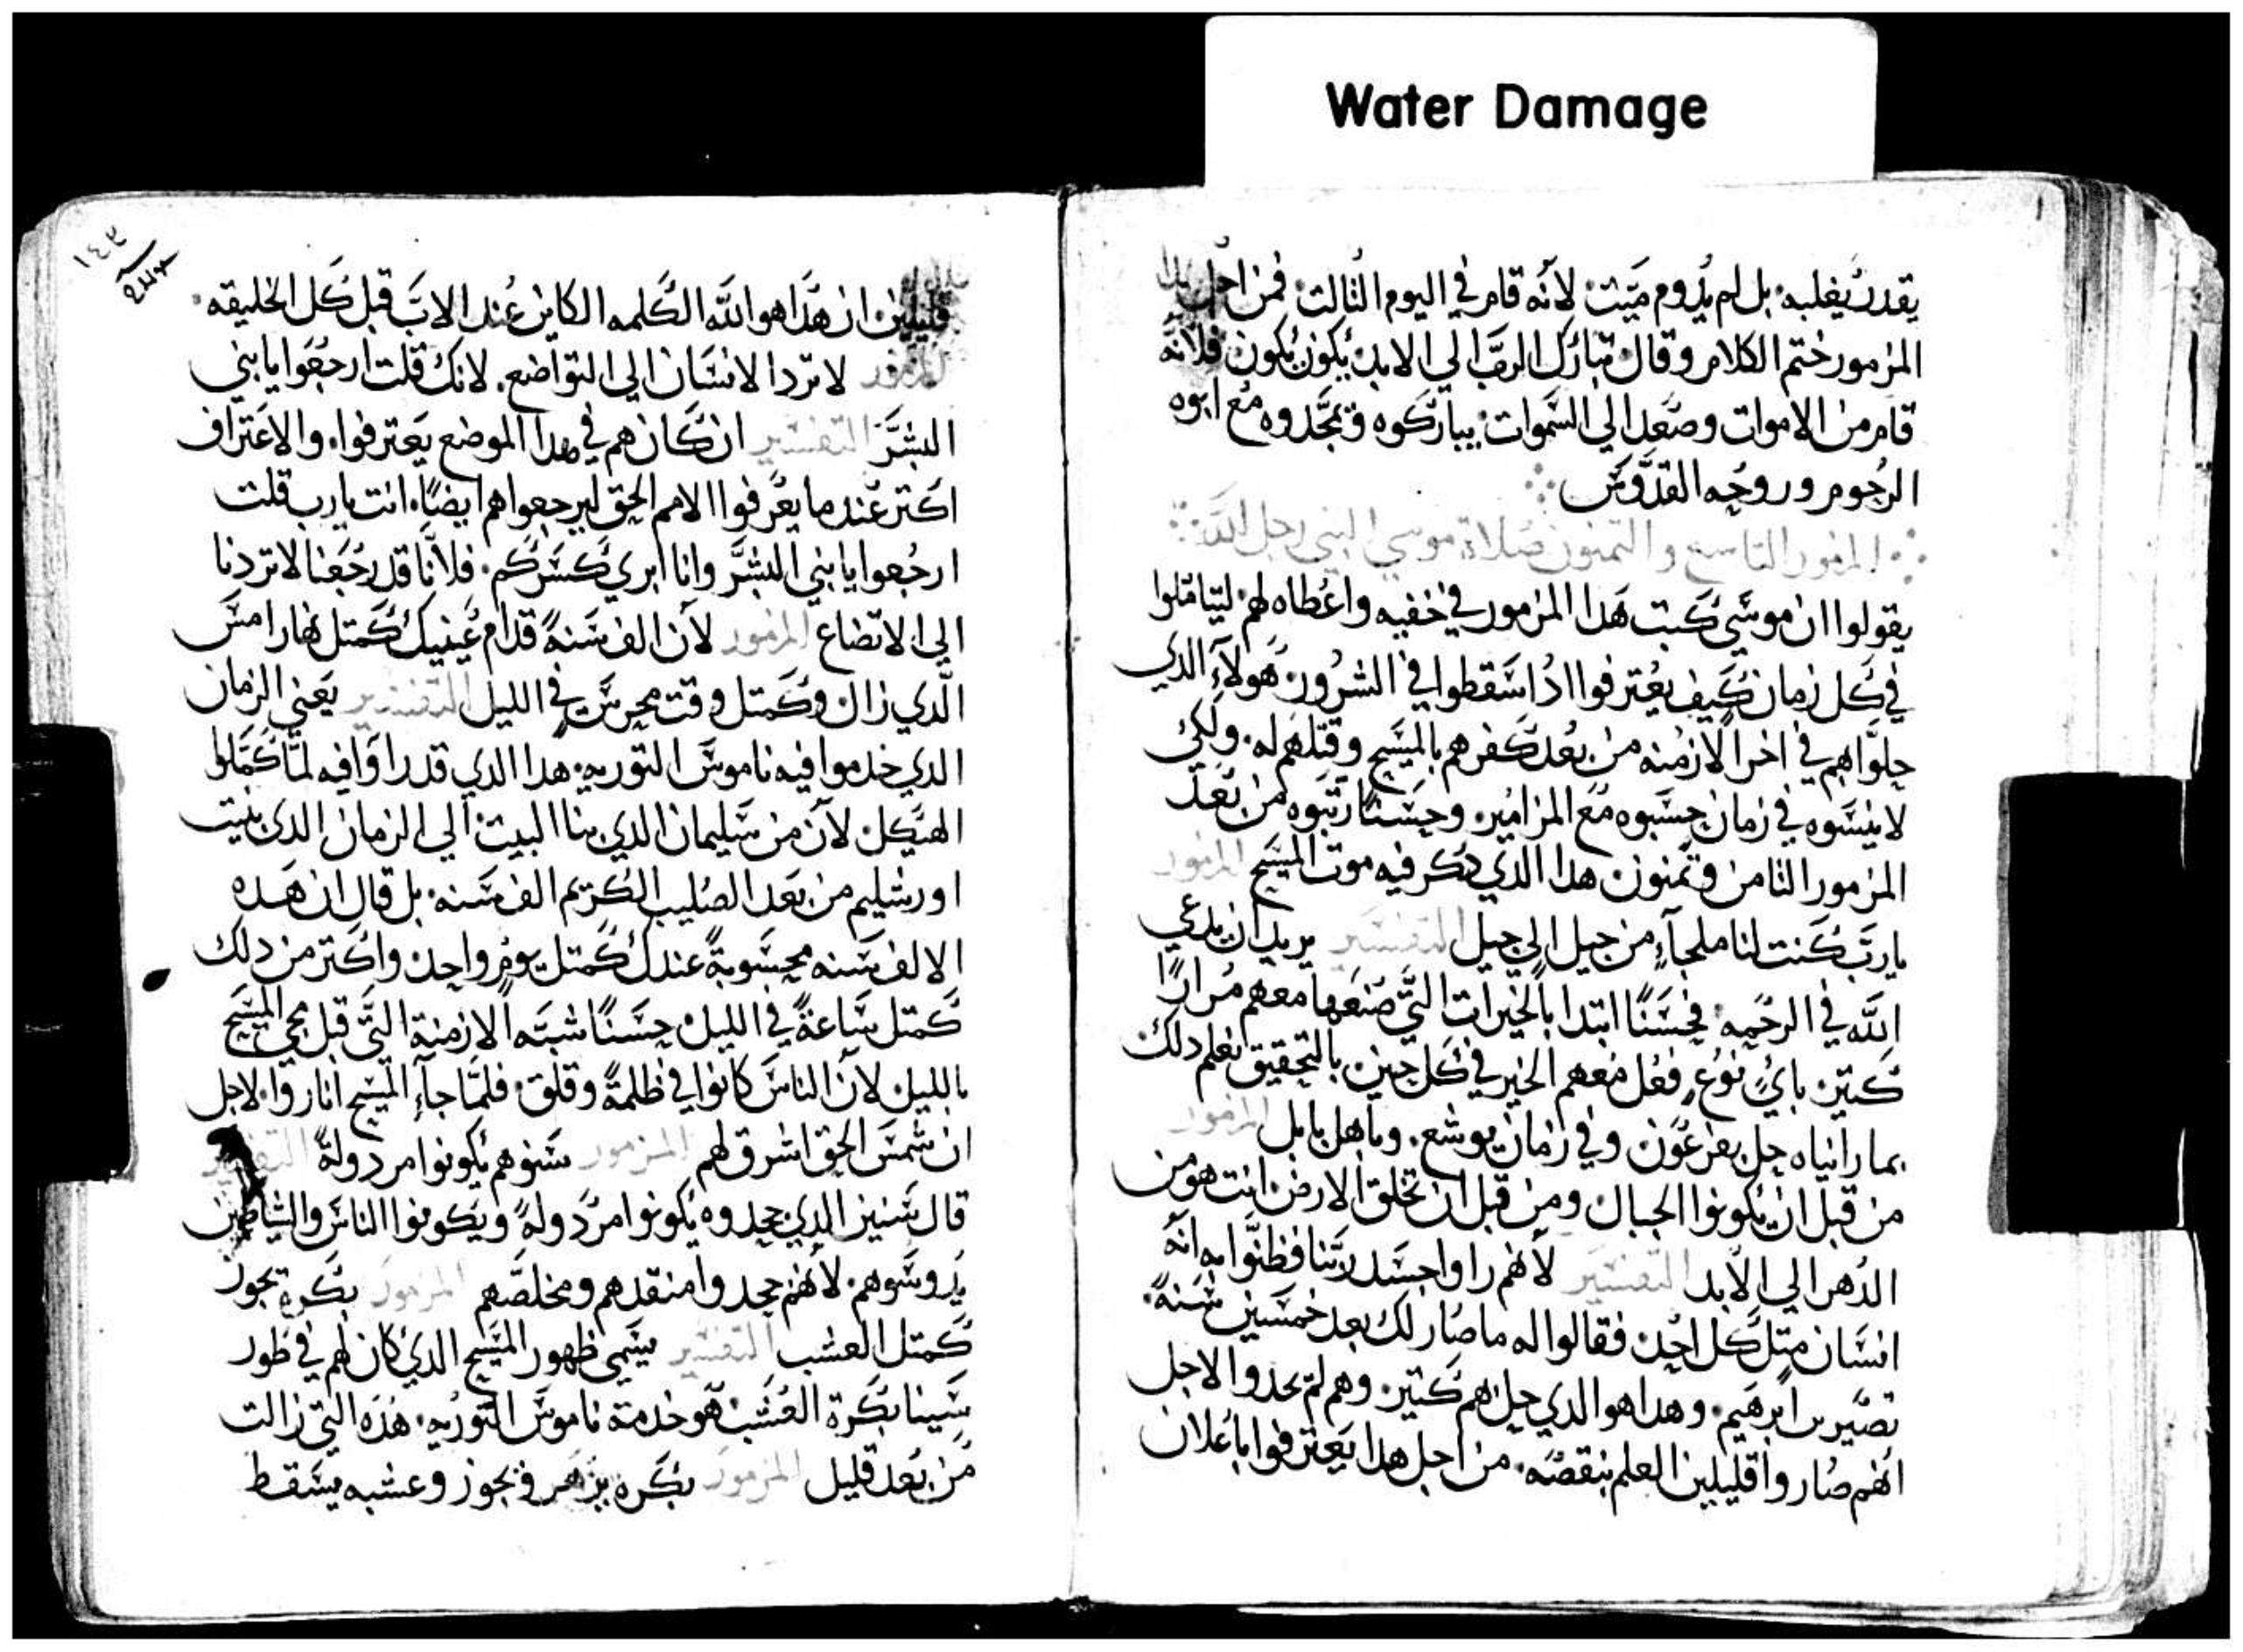 Water Damage
يقدر يغلبه. بل لم يدوم ميت. لانه قام في اليوم التالت. فمن اجل
المزمور ختم الكلام وقال تبارك الرب الي الابد يكون يكون فلانه
قام من الاموات وصعد الي السموات. يباركوه ويمجدوه مع ابوه
الرحوم وروحه القدوس
المزمور التاسع والتمنون صلاة موسي النبي رجل الله
يقولوا ان موسي كتب هدا المزمور في خفيه واعطاه لهم. ليتاملوا
في كل زمان كيف يعترفوا ادا سقطوا في الشرور. هولاء الدي
حلوا بهم في اخر الازمنه من بعد كفرهم بالمسيح وقتلهم له. ولكي
لا ينسوه في زمان حسبوه مع المزامير. وحسنا رتبوه من بعد
المزمور التامن وتمنون هدا الدي دكر فيه موت المسيح المزمور
يارب كنت لنا ملجآء من جيل الي جيل التفسير يريد ان يدعي
الله في الرحمه. فحسنا ابتدا بالخيرات التي صنعها معهم مرارا
كتير. باي نوع فعل معهم الخير في كل حين. بالتحقيق نعلم دلك
بما راتياه حل بفرعون وفي زمان يوشع. وباهل بابل المزمور
من قبل ان يكونوا الجبال ومن قبل ان تخلق الارض. انت هو من
الدهر الي الابد التفسير لانهم راوا جسد ربنا فظنوا به انه
انسان متل كل احد. فقالوا له ما صار لك بعد خمسين سنة.
تصير ابرهيم. وهدا هو الدي حل بهم كتير. وهم لم يحدوا الاجل
انهم صاروا قليلين العلم بنقصه. من اجل هدا يعترفوا باعلان
١٤٢
قليلين. ان هدا هو الله الكلمه الكاين عند الاب قبل كل الخليقه
المزمور لا ترد الانسان الي التواضع. لانك قلت ارجعوا يا بني
البشر التفسير ان كان هم في هدا الموضع يعترفوا. والاعتراف
اكتر عند ما يعرفوا الامم الحق ليرجعوا هم ايضا. انت يارب قلت
ارجعوا يا بني البشر وانا ابري كسركم. فلانا قد رجعنا لا تردنا
الي الاتضاع المزمور لان الف سنة قدام عينيك كمتل نهار امس
الدي زال وكمتل وقت محرس في الليل التفسير يعني الزمان
الدي خدموا فيه ناموس التوريه. هدا الدي قدراوا فيه لما كملوا
الهيكل. لان من سليمان الدي بنا البيت الي الزمان الدي بنيت
اورشليم من بعد الصليب الكريم الف سنه. بل قال ان هده
الالف سنه محسوبة عندك كمتل يوم واحد. واكتر من دلك
كمتل ساعة في الليل. حسنا شبه الازمنة التي قبل مجي المسيح
بالليل لان الناس كانوا في ظلمة وقلق. فلما جآء المسيح اناروا. لاجل
ان شمس الحق اشرق لهم المزمور سنوهم يكونوا مردولة التفسير
قال سنين الدي جحدوه يكونوا مردولة ويكونوا الناس والشياطين
يدوسوهم. لانهم جحدوا منقدهم ومخلصهم المزمور بكرة يجوز
كمتل العشب التفسير يسمي ظهور المسيح الدي كان لهم في طور
سينا بكرة العشب. هو خدمة ناموس التوريه. هده التي زالت
من بعد قليل المزمور بكره يزهر ويجوز وعشبه يسقط